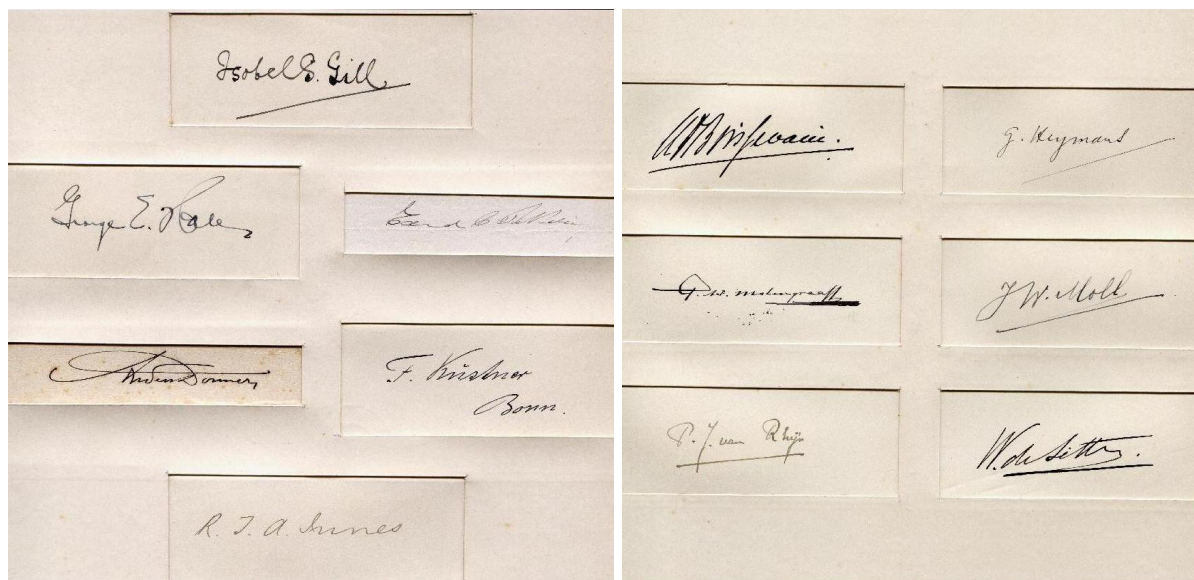 Isobel S. Gill
George E. Hale
F. Küstner
Bonn.
R. T. A. Innes
G. Heymans
G. W. Molengraaff
J W. Moll
P. J. van Rhijn
W. de Sitter.